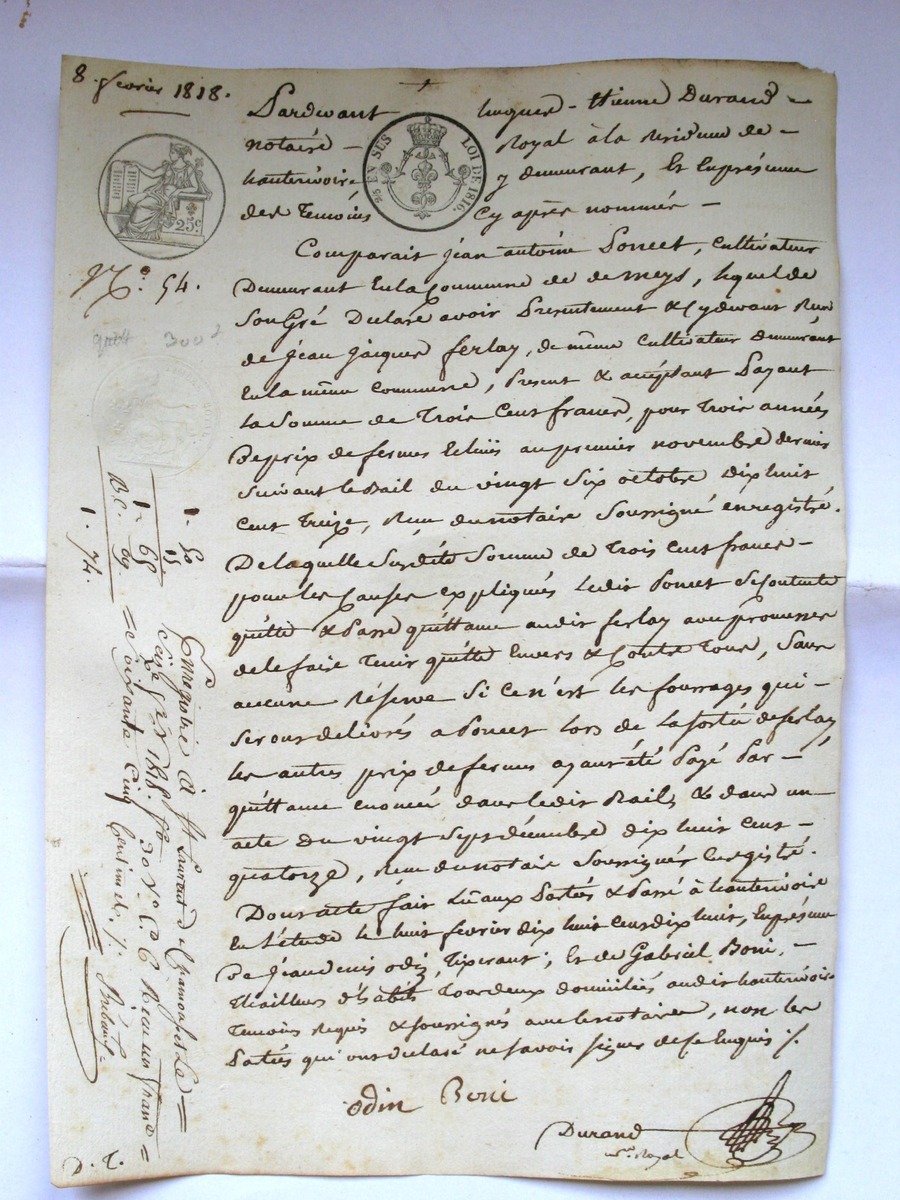 8. fevrier 1818.
Pardevant hugues - Etienne Durand
notaire - Royal à la Residence de -
hauterivoire y demeurant, Et En présence
des Temoins Cy après nommés -
25 EN SUS LOI DE 1816.
25c
No. 54.
quitt 300
Comparait jean antoine Poncet, Cultivateur
Demeurant En la Commune de de meys, lequel de
Son Gré Declare avoir Presentement & Cydevant Reçu
de Jean Jacques ferlay, de même Cultivateur demeurant
En la même Commune, Present & acceptant Payant
la Somme de Trois Cent francs, pour Trois années
De prix de fermes au premier novembre dernier
Suivant le Bail du vingt Six octobre dix huit
Cent Treize, Reçu du notaire Soussigné enregistré.
De la quelle Susdite Somme de Trois Cent francs -
pour les Causes expliqués Ledit Poncet Se Contente
quitte & Passe quittance audit ferlay avec promesse
de le faire Tenir quitte Envers & Contre Tous, Sans
aucune Réserve Si ce n'est les fourrages qui -
Seront delivrés a Poncet lors de la Sortie de ferlay
les autres prix de fermes ayant été Payé Par -
quittance enoncée dans ledit Bail, & dans un -
acte du vingt Sept décembre dix huit Cent -
quatorze, Reçu du notaire Soussigné Enregistré.
Dont acte fait Lu aux Parties & Passé à hauterivoire
En l'étude le huit fevrier dix huit Cent dix huit, En présence
De Jean denis odin, Tisserant, Et de Gabriel Boni, -
Thailleur d'habits Tous deux domiciliés audit hauterivoire
Temoins Requis & Soussignés avec le notaire, non les
Parties qui ont declaré ne Savoir Signer de Ce Enquis /.
odin Boni
Durand
no.re Royal
1. 50
15
1 - 65
B.C. 09
1. 74.
Enregistré à St Laurent de Chamousset Le
fevrier 1818. fo 30 Vo C. 6 Reçu un franc
Soixante Cinq Centimes /.
D. T.